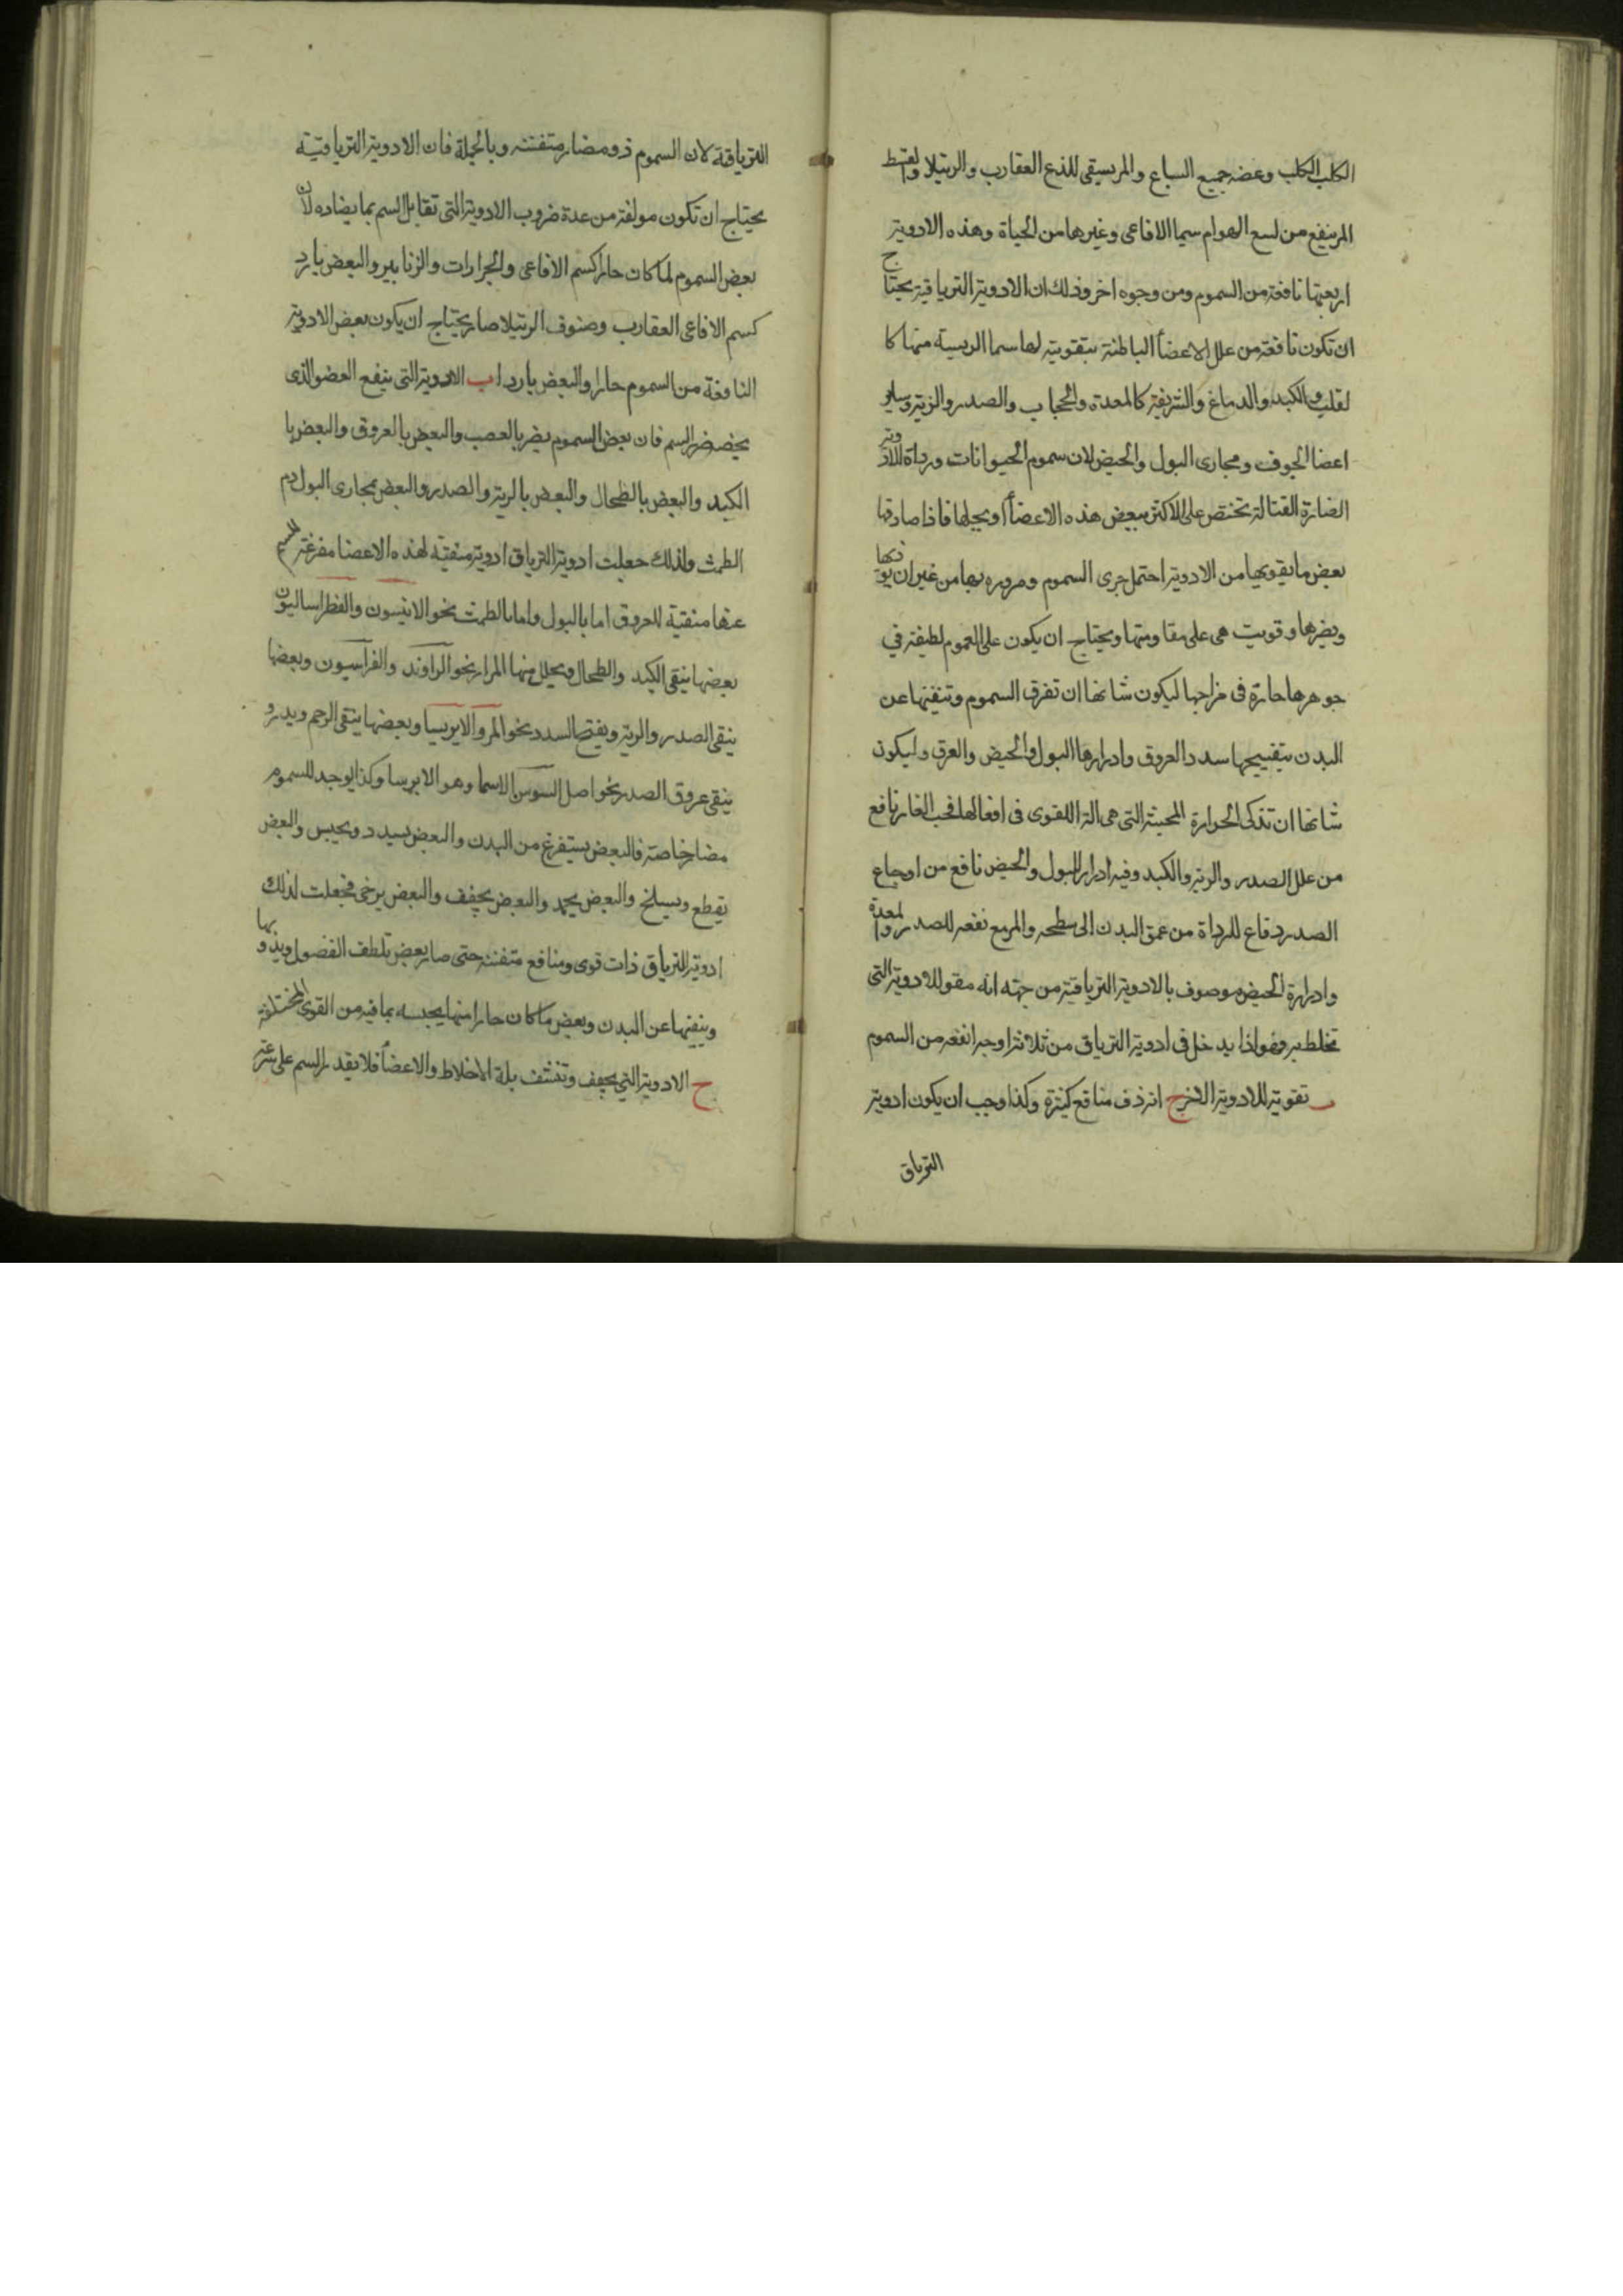 الكلب الكلب وعضه جميع السباع والمر يسقى للذع العقارب والرتيلا والقسط
المر ينفع من لسع الهوام سيما الافاعى وغيرها من الحياة وهذه الادوية
اربعتها نافعة من السموم ومن وجوه اخر وذلك ان الادوية الترياقية يحتاج
ان تكون نافعة من علل الاعضأ الباطنة بتقويته لها سما الريسية منها كا
لقلب والكبد والدماغ والشريفة كالمعدة والحجاب والصدر والرية وساير
اعضا الجوف ومجارى البول والحيض لان سموم الحيوانات ورداة الادوية
الضارة القتالة تختص على الاكثر ببعض هذه الاعضأ او بجلها فاذا صادفها
بعض ما يقويها من الادوية احتمل جرى السموم ومروره بها من غير ان يونكها
ويضرها وقويت هى على مقاومتها ويحتاج ان يكون على العموم لطيفة في
جوهرها حارة فى مزاجها ليكون شانها ان تفرق السموم وتنفيها عن
البدن بتفتيحها سدد العروق وادرارها البول والحيض والعرق وليكون
شانها ان تذكى الحرارة المحيية التى هى الة القوى فى افعالها فحب الغار نافع
من علل الصدر والرية والكبد وفيه ادرار للبول والحيض نافع من اوجاع
الصدر دفاع للرداة من عمق البدن الى سطحه والمر مع نفعه للصدر والمعدة
وادراره الحيض موصوف بالادوية الترياقية من جهة انه مقو للادوية التى
تخلط به فهو اذا يدخل فى ادوية الترياق من ثلاثة اوجه انفعه من السموم
ب تقويته للادوية الاخر ج انه ذو منافع كثيرة وكذا وجب ان يكون ادوية
الترياق
الترياقة لان السموم ذو مضار متفننه وبالجملة فان الادوية الترياقية
يحتاج ان تكون مولفة من عدة ضروب الادوية التى تقابل السم بما يضاده لان
بعض السموم لما كان حارا كسم الافاعى والجرارات والزنابير والبعض بارد
كسم الافاعى العقارب وصنوف الرتيلا صار يحتاج ان يكون بعض الادوية
النافعة من السموم حارا والبعض باردا ب الادوية التى ينفع العضو الذى
يخصه ضر السم فان بعض السموم يضر بالعصب والبعض بالعروق والبعض با
الكبد والبعض بالطحال والبعض بالرية والصدر والبعض بمجارى البول دم
الطمث ولذلك جعلت ادوية الترياق ادوية منقية لهذه الاعضا مفرغة للسم
عنها منقية للعروق اما بالبول واما بالطمث نحو الانيسون والفطراساليون
بعضها ينقى الكبد والطحال ويحلل منها المرار نحو الراوند والفراسيون وبعضها
ينقى الصدر والرية ويفتح السدد نحو المر والايريسا وبعضها ينقى الرحم ويدر و
ينقى عروق الصدر نحو اصل السوس الاسما وهو الايرسا وكذا يوجد للسموم
مضار خاصة فالبعض يستفرغ من البدن والبعض يسدد ويحبس والبعض
يقطع ويسلخ والبعض يجمد والبعض يجفف والبعض يرخى فجعلت لذلك
ادوية الترياق ذات قوى ومنافع متفننه حتى صار بعض تلطف الفضول ويذوبها
وينفيها عن البدن وبعض ما كان حارا منها يحبسه بما فيه من القوى المختلفة
ح الادوية التي يجفف وتنشف بلة الاخلاط والاعضأ فلا يقدر السم على سرعة